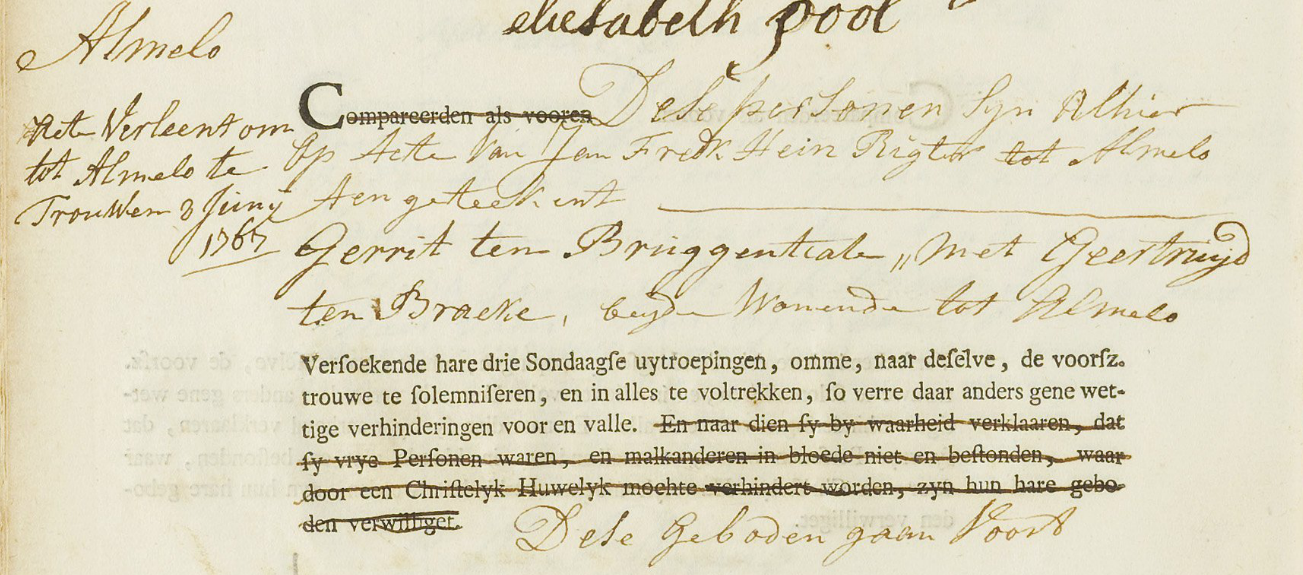 eliesabeth pool
Almelo
Acte Verleent om
tot Almelo te
Trouwen 8 Junij
1767
Compareerden als vooren Dese persoonen Syn Alhier
Op Acte Van Jan Fredk Hein Rigter tot Almelo
Aen geteekent
Gerrit ten Bruggencate „ met Geertruijd
ten Bracke, beyde Wonende tot Almelo
Versoekende hare drie Sondaagse uytroepingen, omme, naar deselve, de voorsz.
trouwe te solemniseren, en in alles te voltrekken, so verre daar anders gene wet-
tige verhinderingen voor en valle. En naar dien sy by waarheid verklaaren, dat
sy vrye Personen waren, en malkanderen in bloede niet en bestonden, waar
door een Christelyk Huwelyk mochte verhindert worden, zyn hun hare gebo-
den verwilliget.
Dese Geboden gaan Voort